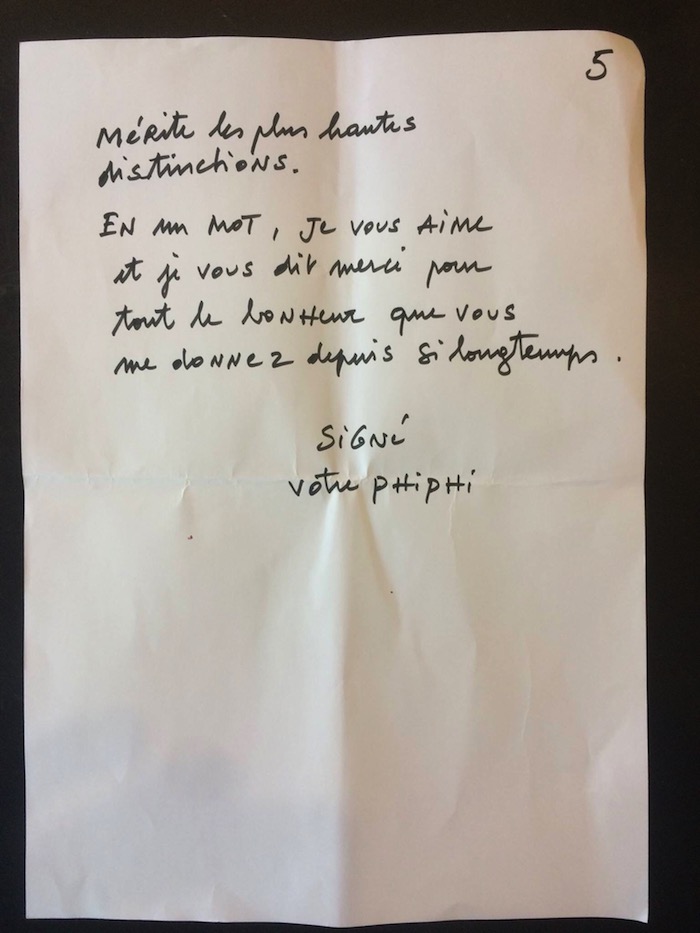 5
MéRite les plus hautes
distinctions.
EN un MOT, Je vous AIME
et je vous dit merci pour
tout le bonHeur que vous
me donnez depuis si longtemps.
SiGNé
votre PHiPHi